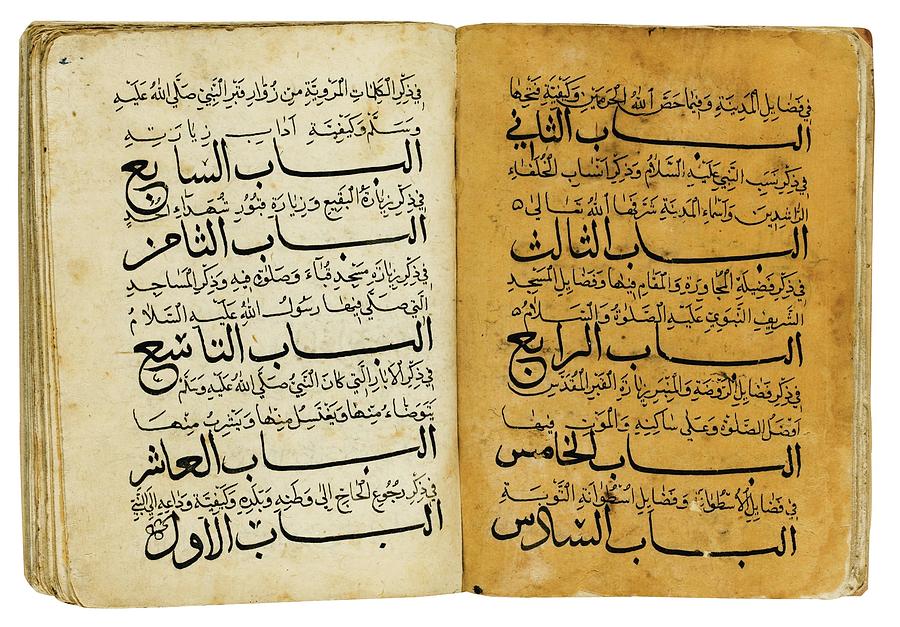 في فضايل المدينة وفيما خص الله الحرمين وكيفية فتحها
الباب الثاني
في ذكر نسب النبي عليه السلام وذكر انساب الخلفاء
الراشدين واسماء المدينة شرفها الله تعالى
الباب الثالث
في ذكر فضيلة المجاورة والمقام فيها وفضايل المسجد
الشريف النبوي عليه الصلوة والسلام
الباب الرابع
في ذكر فضايل الروضة والمنبر القبر المقدس
افضل الصلوة وعلى ساكنه والموت فيها
الباب الخامس
في فضايل وفضايل اسطوانة التوبة
الباب السادس
في ذكر الكلمات المروية من زوار قبر النبي صلى الله عليه
وسلم وكيفية اداب زيارته
الباب السابع
في ذكر زيارة البقيع وزيارة قبور شهداء احد
الباب الثامن
في ذكر زيارة مسجد قباء وصلوة فيه وذكر المساجد
التي صلى فيها رسول الله عليه السلام
الباب التاسع
في ذكر الابار التي كان النبي صلى الله عليه وسلم
يتوضاء منها ويغتسل منها ويشرب منها
الباب العاشر
في ذكر رجوع الحاج الى وطنه وبلده وكيفية وداعه الى
الباب الاول